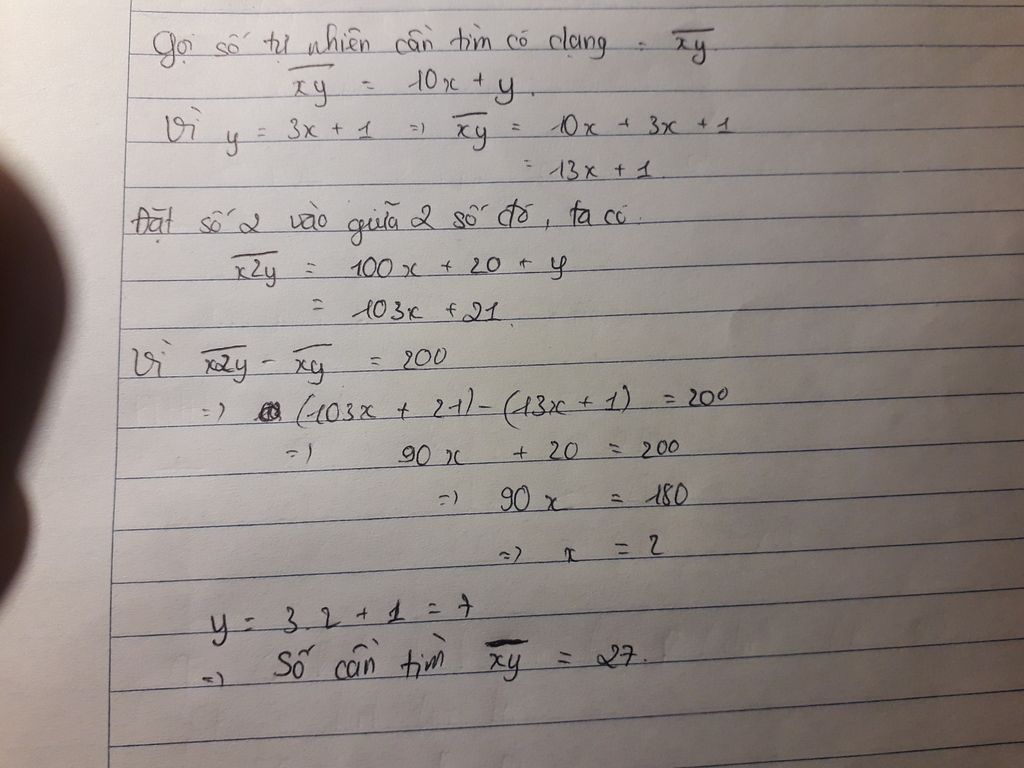 Gọi số tự nhiên cần tìm có dạng : x̅y̅
x̅y̅ = 10x + y.
Vì y = 3x + 1 => x̅y̅ = 10x + 3x + 1
= 13x + 1.
Đặt số 2 vào giữa 2 số đó, ta có.
x̅2̅y̅ = 100x + 20 + y
= 103x + 21.
Vì x̅2̅y̅ - x̅y̅ = 200
=> (103x + 21) - (13x + 1) = 200
=> 90x + 20 = 200
=> 90x = 180
=> x = 2
y = 3.2 + 1 = 7
=> Số cần tìm x̅y̅ = 27.